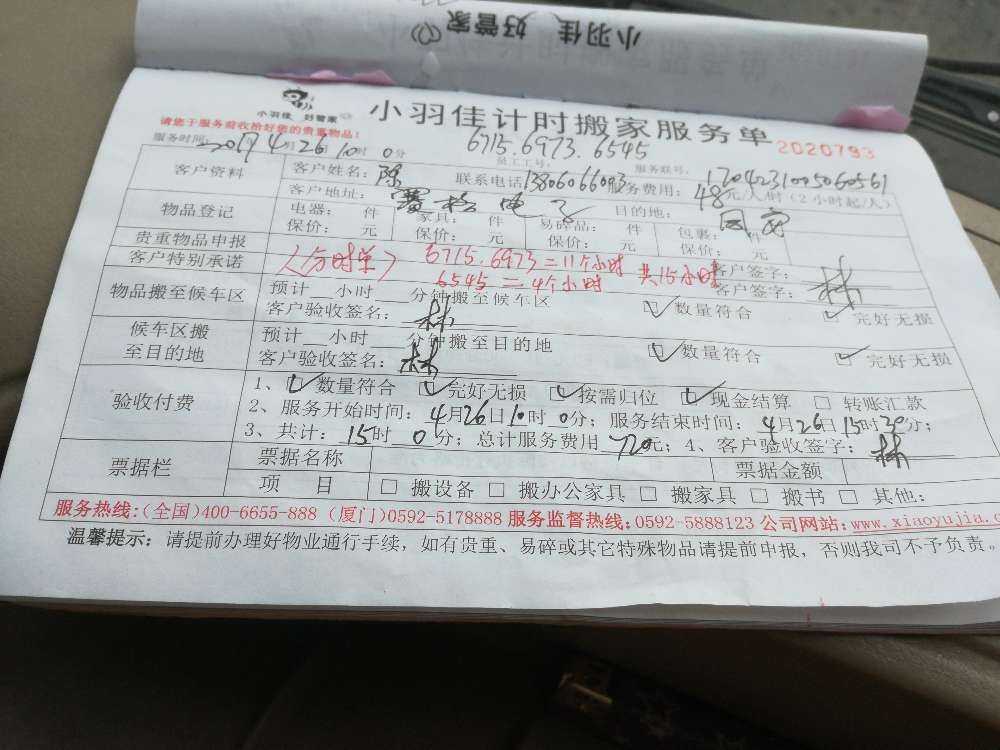 小羽佳 好管家
小羽佳 好管家
小羽佳计时搬家服务单
2020793
请您于服务前收拾好您的贵重物品!
服务时间: 2017年4月26日10时0分 员工工号: 6715.6973.6545 服务联号:
客户资料 客户姓名: 陈 联系电话 13806066093 服务费用: 48元/人/时(2小时起/人)
客户地址: 赛格电子 目的地:
物品登记 电器: 件 家具: 件 易碎品: 件 包裹: 件
保价: 元 保价: 元 保价: 元 保价: 元
贵重物品申报 客户签字:
客户特别承诺 (分时单) 6715.6973=11个小时 共15小时 客户签字: 林
6545=4个小时
物品搬至候车区 预计__小时__分钟搬至候车区 ☑数量符合 ☑完好无损
客户验收签名: 林
候车区搬至目的地 预计__小时__分钟搬至目的地 ☑数量符合 ☑完好无损
客户验收签名: 林
验收付费 1、☑数量符合 ☑完好无损 ☑按需归位 ☑现金结算 □转账汇款
2、服务开始时间: 4月26日10时0分; 服务结束时间: 4月26日15时30分;
3、共计: 15时0分; 总计服务费用 720元; 4、客户验收签字: 林
票据栏 票据名称 票据金额
项 目 □搬设备 □搬办公家具 □搬家具 □搬书 □其他:
服务热线:(全国)400-6655-888 (厦门)0592-5178888 服务监督热线:0592-5888123 公司网站:www.xiaoyujia.c
温馨提示: 请提前办理好物业通行手续, 如有贵重、易碎或其它特殊物品请提前申报, 否则我司不予负责。